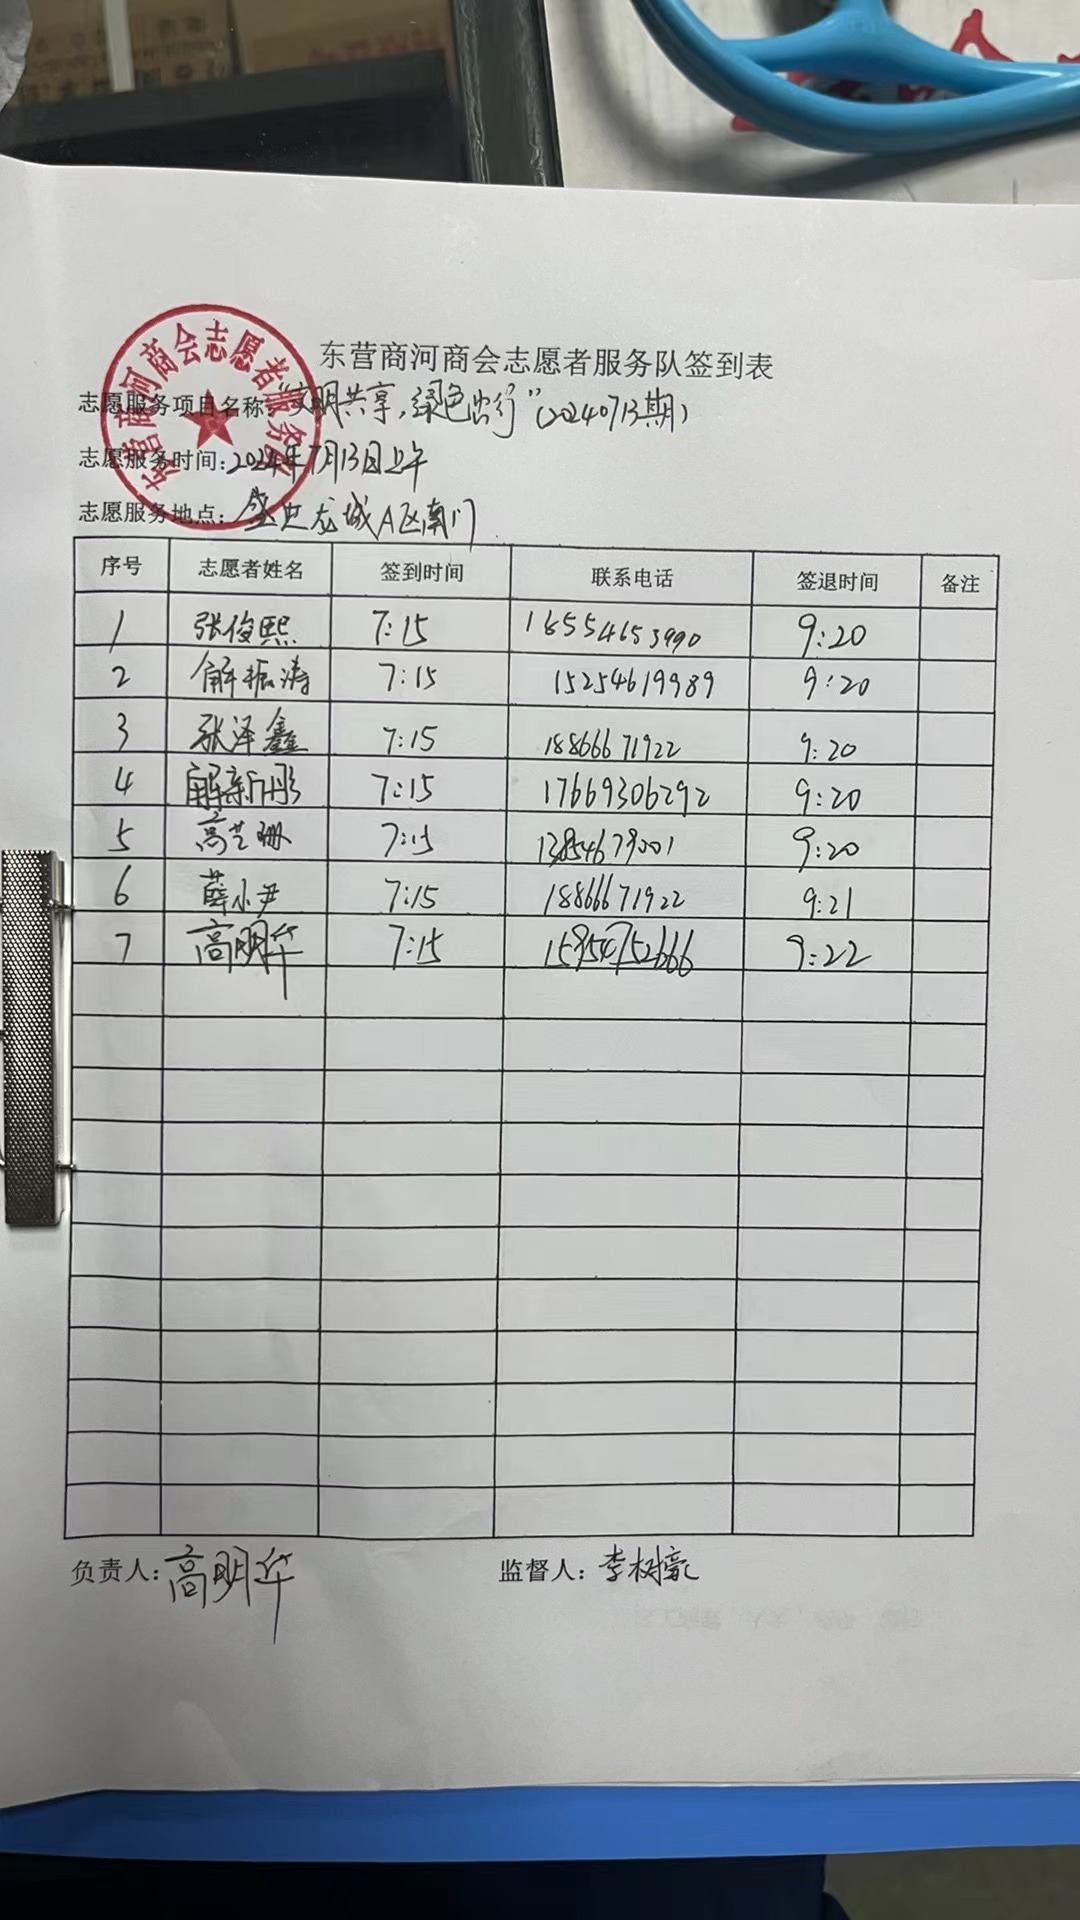 东营商河商会志愿者服务队
东营商河商会志愿者服务队签到表
志愿服务项目名称:“文明共享,绿色出行”(20240713期)
志愿服务时间:2024年7月13日上午
志愿服务地点:盛世龙城A区南门
序号 志愿者姓名 签到时间 联系电话 签退时间 备注
1 张俊熙 7:15 18554653990 9:20
2 解振涛 7:15 15254619989 9:20
3 张泽鑫 7:15 18866671922 9:20
4 解新彤 7:15 17669306292 9:20
5 高艺珊 7:15 9:20
6 薛小尹 7:15 18866671922 9:21
7 高明华 7:15 15954752666 9:22
负责人:高明华 监督人:李树豪